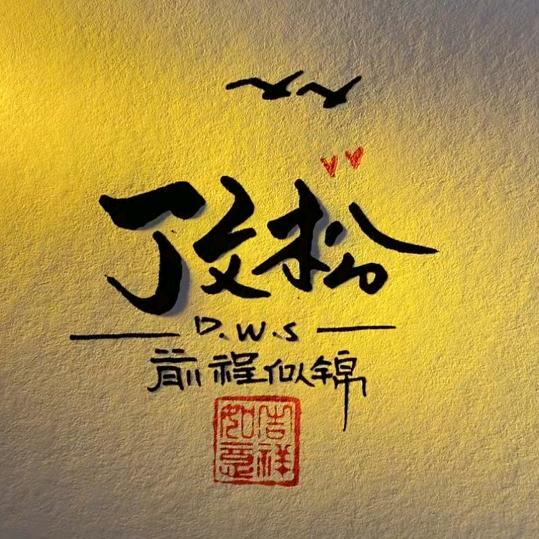 丁文松
D.W.S
前程似锦
吉祥如意